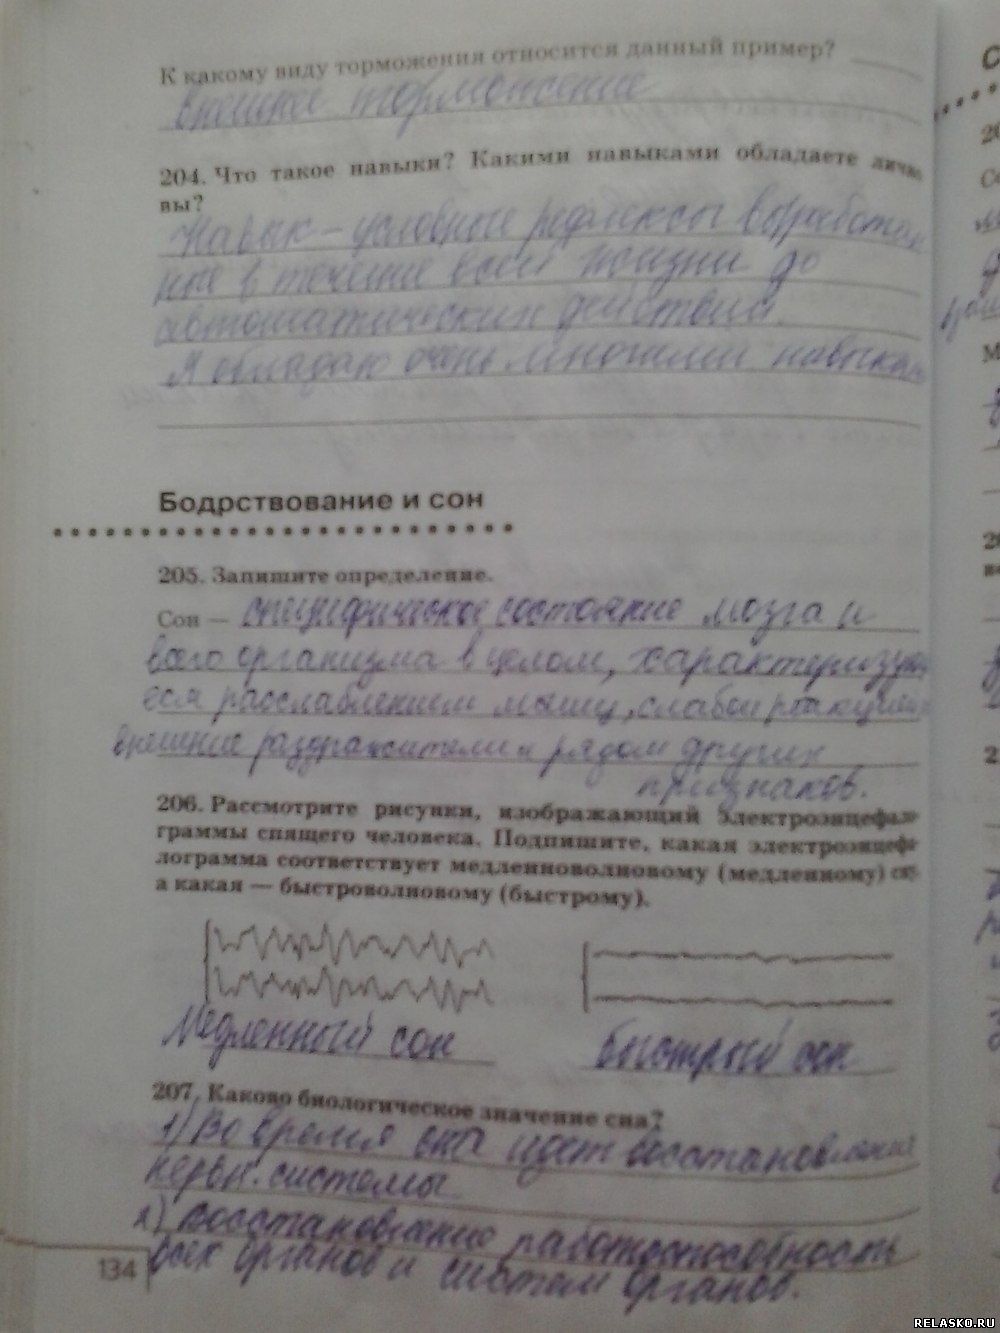 К какому виду торможения относится данный пример?
внешнее торможение
204. Что такое навыки? Какими навыками обладаете лично
вы?
Навык – условные рефлексы выработан
ные в течение всей жизни до
автоматических действий.
Я обладаю очень многими навыками
Бодрствование и сон
205. Запишите определение.
Сон — специфическое состояние мозга и
всего организма в целом, характеризующ
ееся расслаблением мышц, слабой реакцией на
внешние раздражители и рядом других
признаков.
206. Рассмотрите рисунки, изображающий электроэнцефало-
граммы спящего человека. Подпишите, какая электроэнцефа-
лограмма соответствует медленноволновому (медленному) сну,
а какая — быстроволновому (быстрому).
Медленный сон быстрый сон
207. Каково биологическое значение сна?
1) Во время сна идет восстановление
нервн. системы
2) восстановление работоспособность
всех органов и систем органов.
134
RELASKO.RU